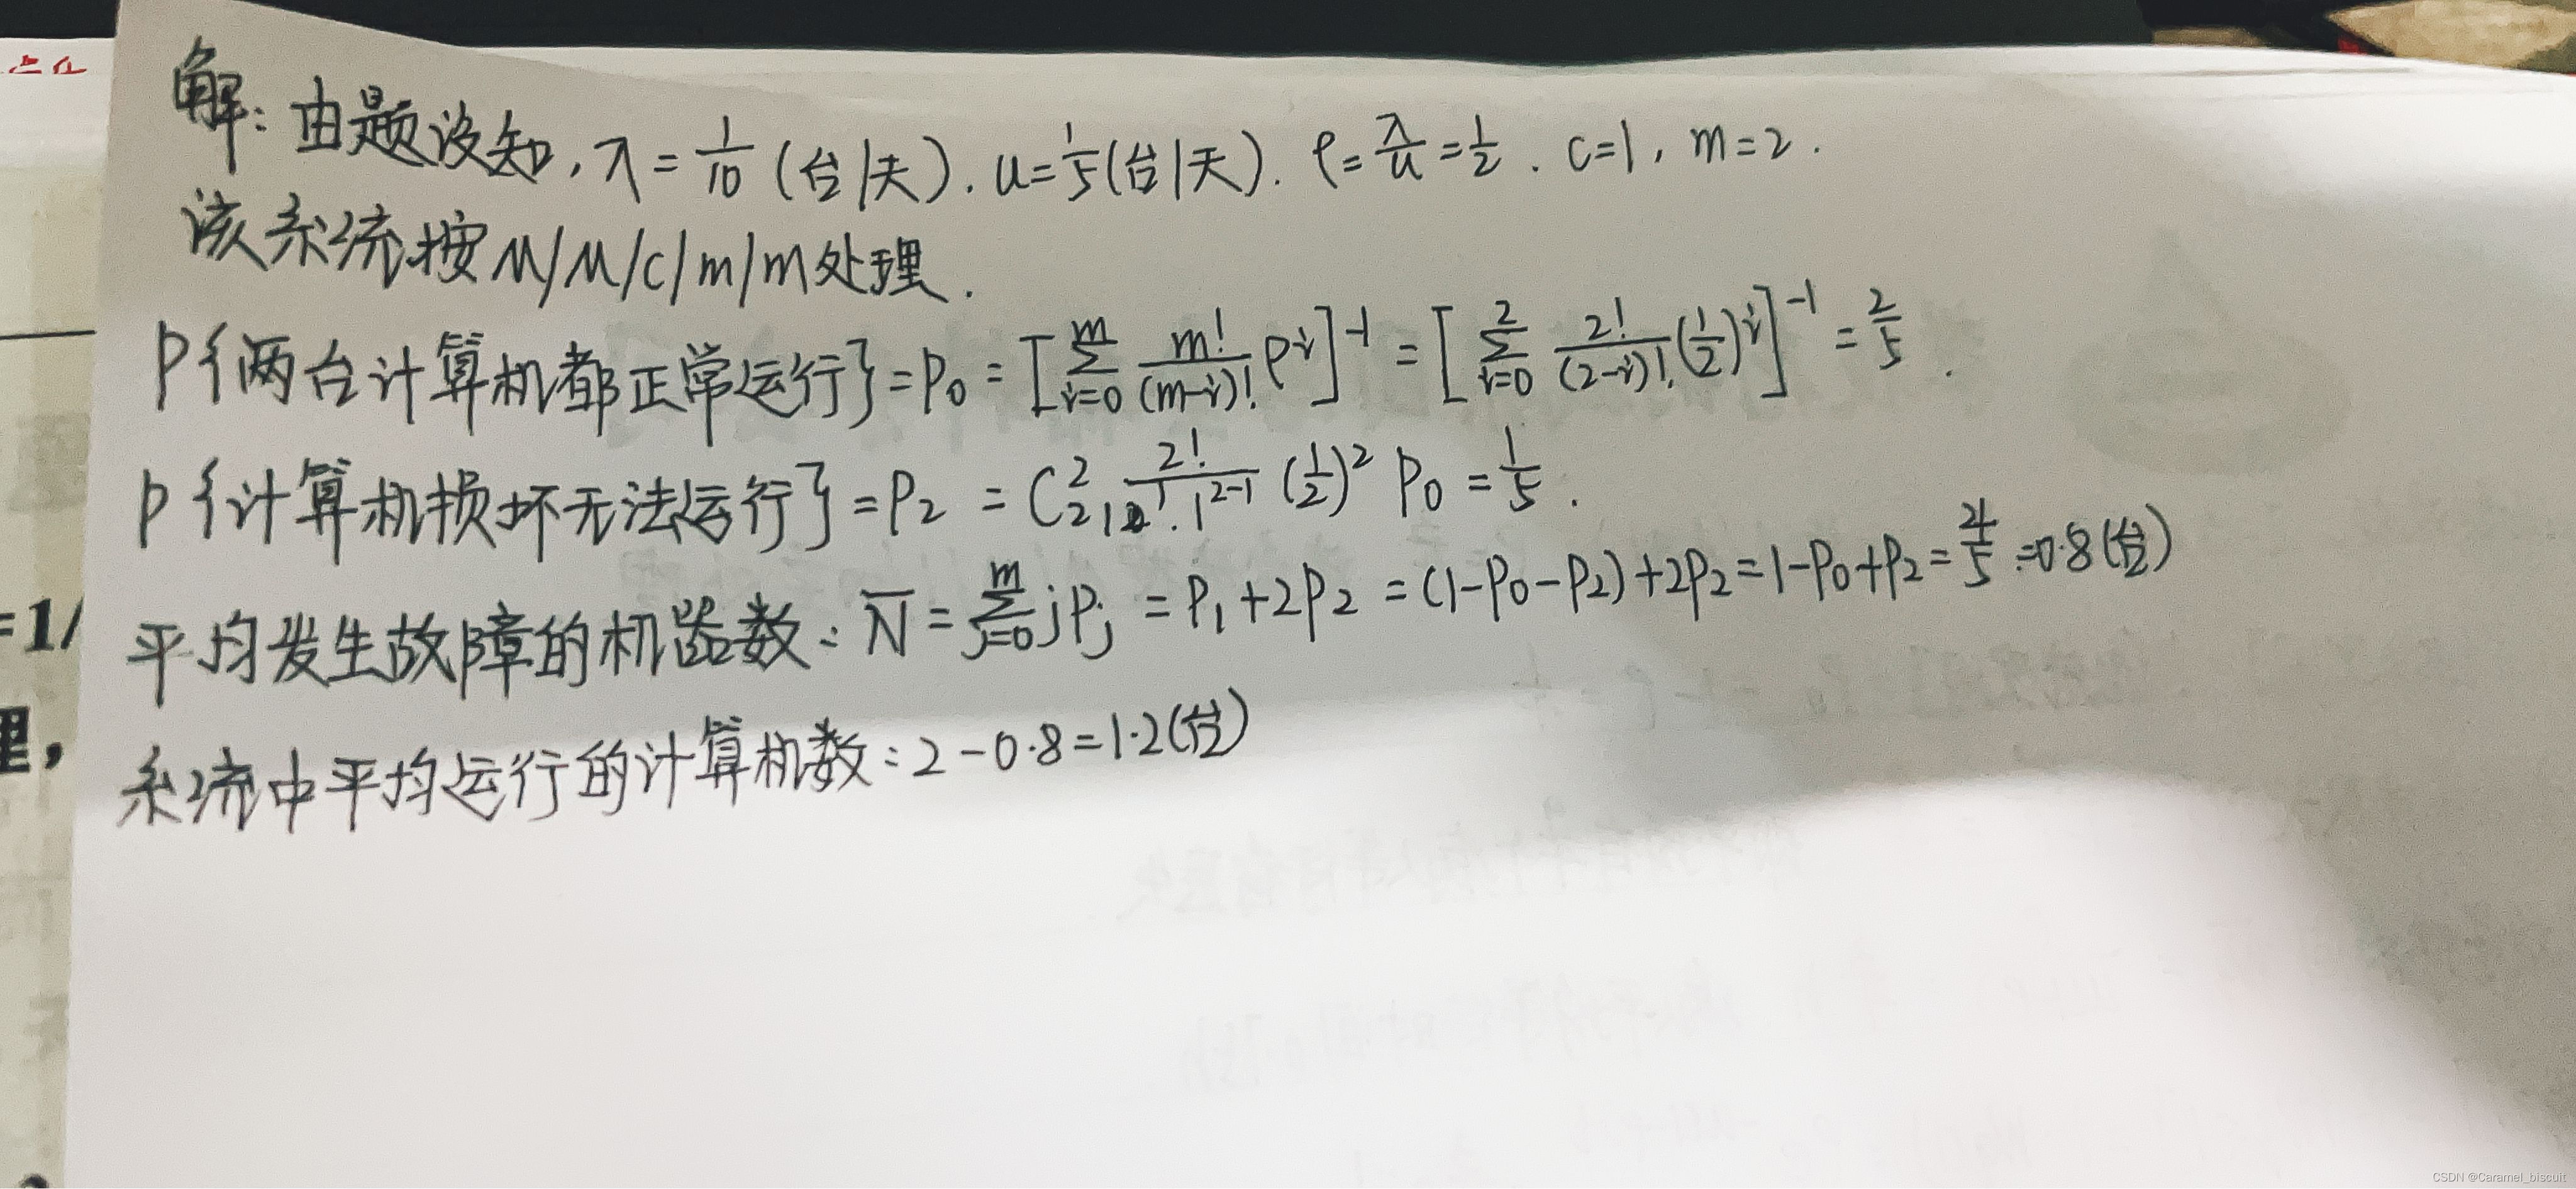 解：由题设知，λ=1/10（台/天）. u=1/5（台/天）. ρ=λ/u=1/2 . c=1，m=2 .
该系统按M/M/c/m/m处理.
P{两台计算机都正常运行}=P₀=[∑_{i=0}^{m} m!/(m-i)! ρ^i]^{-1}=[∑_{i=0}^{2} 2!/(2-i)! (1/2)^i]^{-1}=2/5 .
P{计算机损坏无法运行}=P₂= C₂² 2!/(1! · 1^{2-1}) (1/2)² P₀=1/5 .
平均发生故障的机器数：N̅=∑_{j=0}^{m} jP_j=P₁+2P₂=(1-P₀-P₂)+2P₂=1-P₀+P₂=4/5=0.8(台)
系统中平均运行的计算机数：2-0.8=1.2(台)
=1/
理，
CSDN @Caramel_biscuit